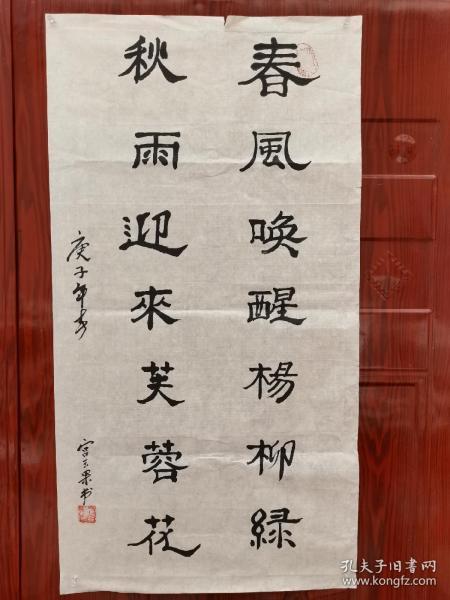 春風喚醒楊柳緑
秋雨迎來芙蓉花
庚子年春
书
孔夫子旧书网
www.kongfz.com